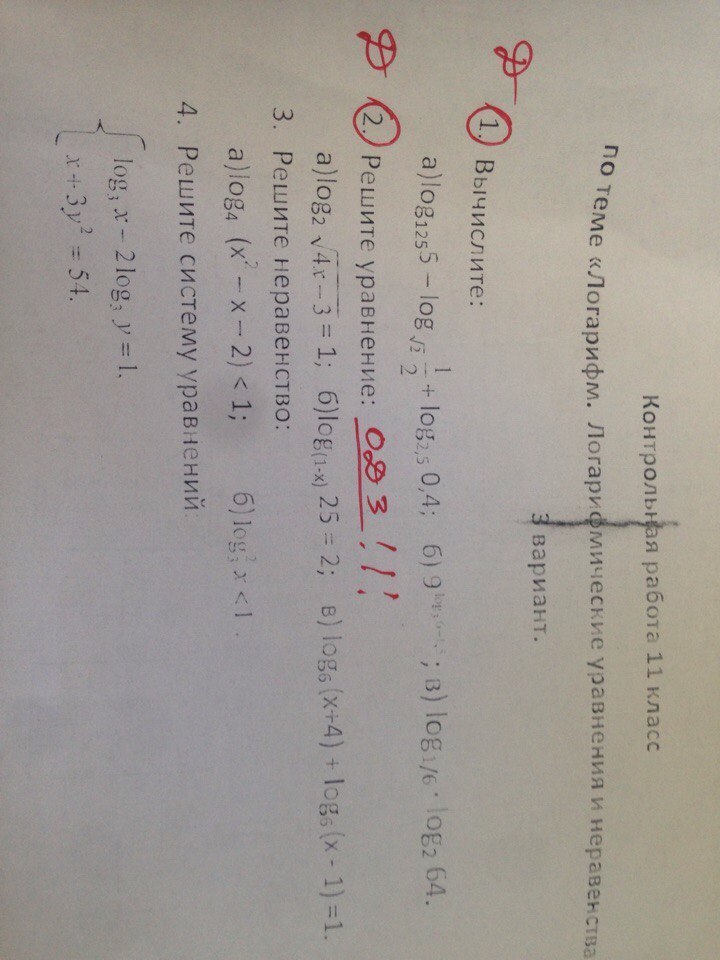 Контрольная работа 11 класс
По теме «Логарифм. Логарифмические уравнения и неравенства
3 вариант.
Д 1. Вычислите:
а)log₁₂₅5 – log_√2 1/2 + log₂,₅ 0,4; б) 9 ; в) log₁/₆· log₂ 64.
Д 2. Решите уравнение: ОДЗ!!!
а)log₂ √(4x – 3) = 1; б)log₍₁₋ₓ₎ 25 = 2; в) log₆ (x+4) + log₆ (x - 1) =1.
3. Решите неравенство:
а)log₄ (x² – x – 2) < 1; б) log₃² x < 1 .
4. Решите систему уравнений:
{ log₃ x – 2 log₃ y = 1,
x + 3y² = 54.